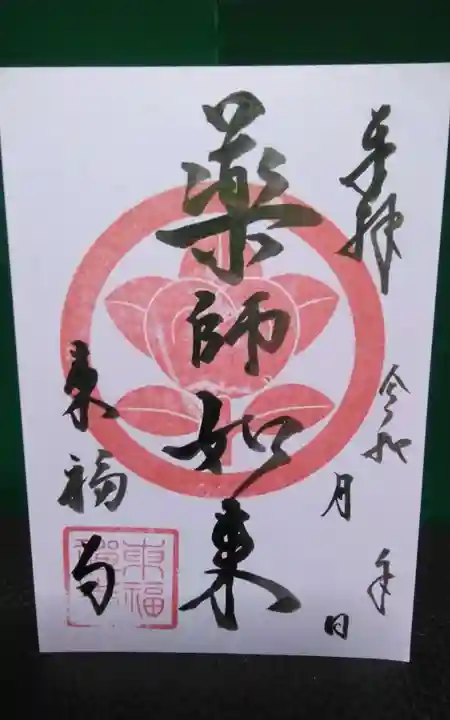 奉拝
令和 年
月 日
薬師如来
東福寺
東福